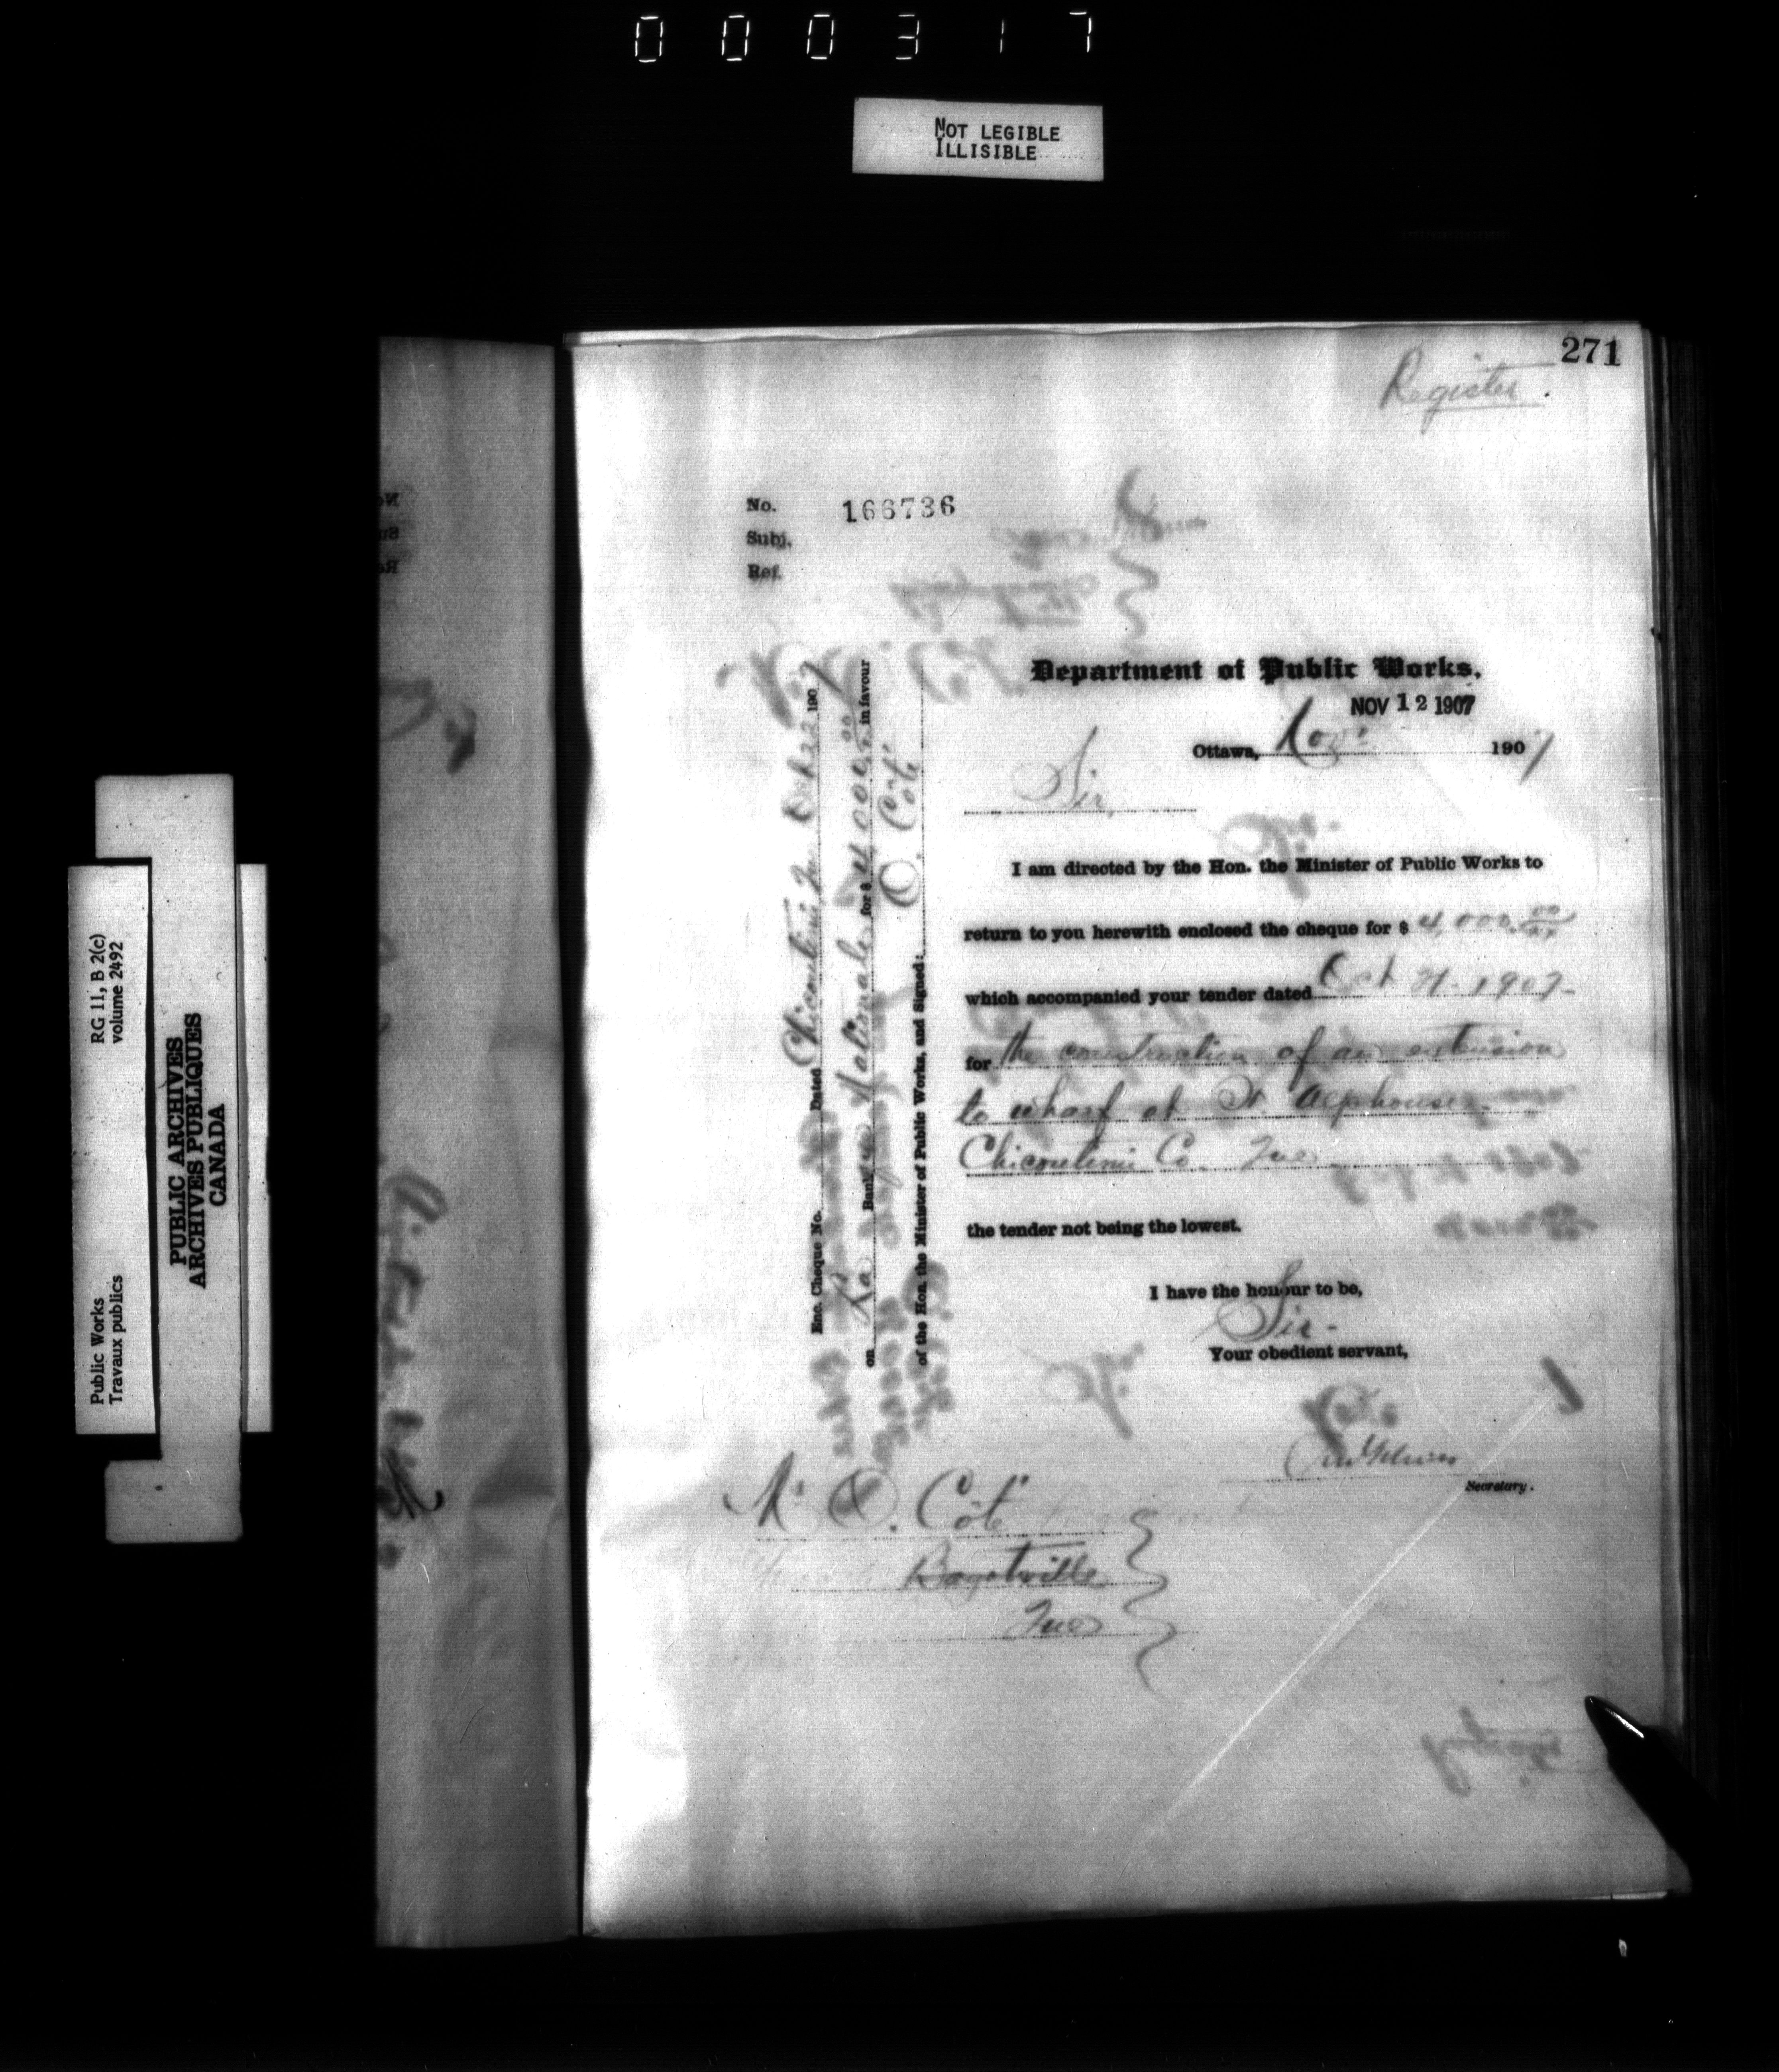 000317
NOT LEGIBLE
ILLISIBLE
271
Register.
No. 166736
Subj.
Ref.
Department of Public Works.
NOV 12 1907
Ottawa, Nov. 1907
Sir,
I am directed by the Hon. the Minister of Public Works to
return to you herewith enclosed the cheque for $ 4,000.00/xx
which accompanied your tender dated Oct 21. 1907-
for the construction of an extension
to wharf at St. Alphonse,
Chicoutimi Co. Que
the tender not being the lowest.
I have the honour to be,
Sir-
Your obedient servant,
Secretary.
Mr O. Coté
Bagotville
Que
Enc. Cheque No. Dated Chicoutimi, Que Oct 22 1907
on La Banque Nationale for $ 4,000.00/xx in favour
of the Hon. the Minister of Public Works, and Signed: O. Coté
RG 11, B 2(c)
volume 2492
Public Works
Travaux publics
PUBLIC ARCHIVES
ARCHIVES PUBLIQUES
CANADA